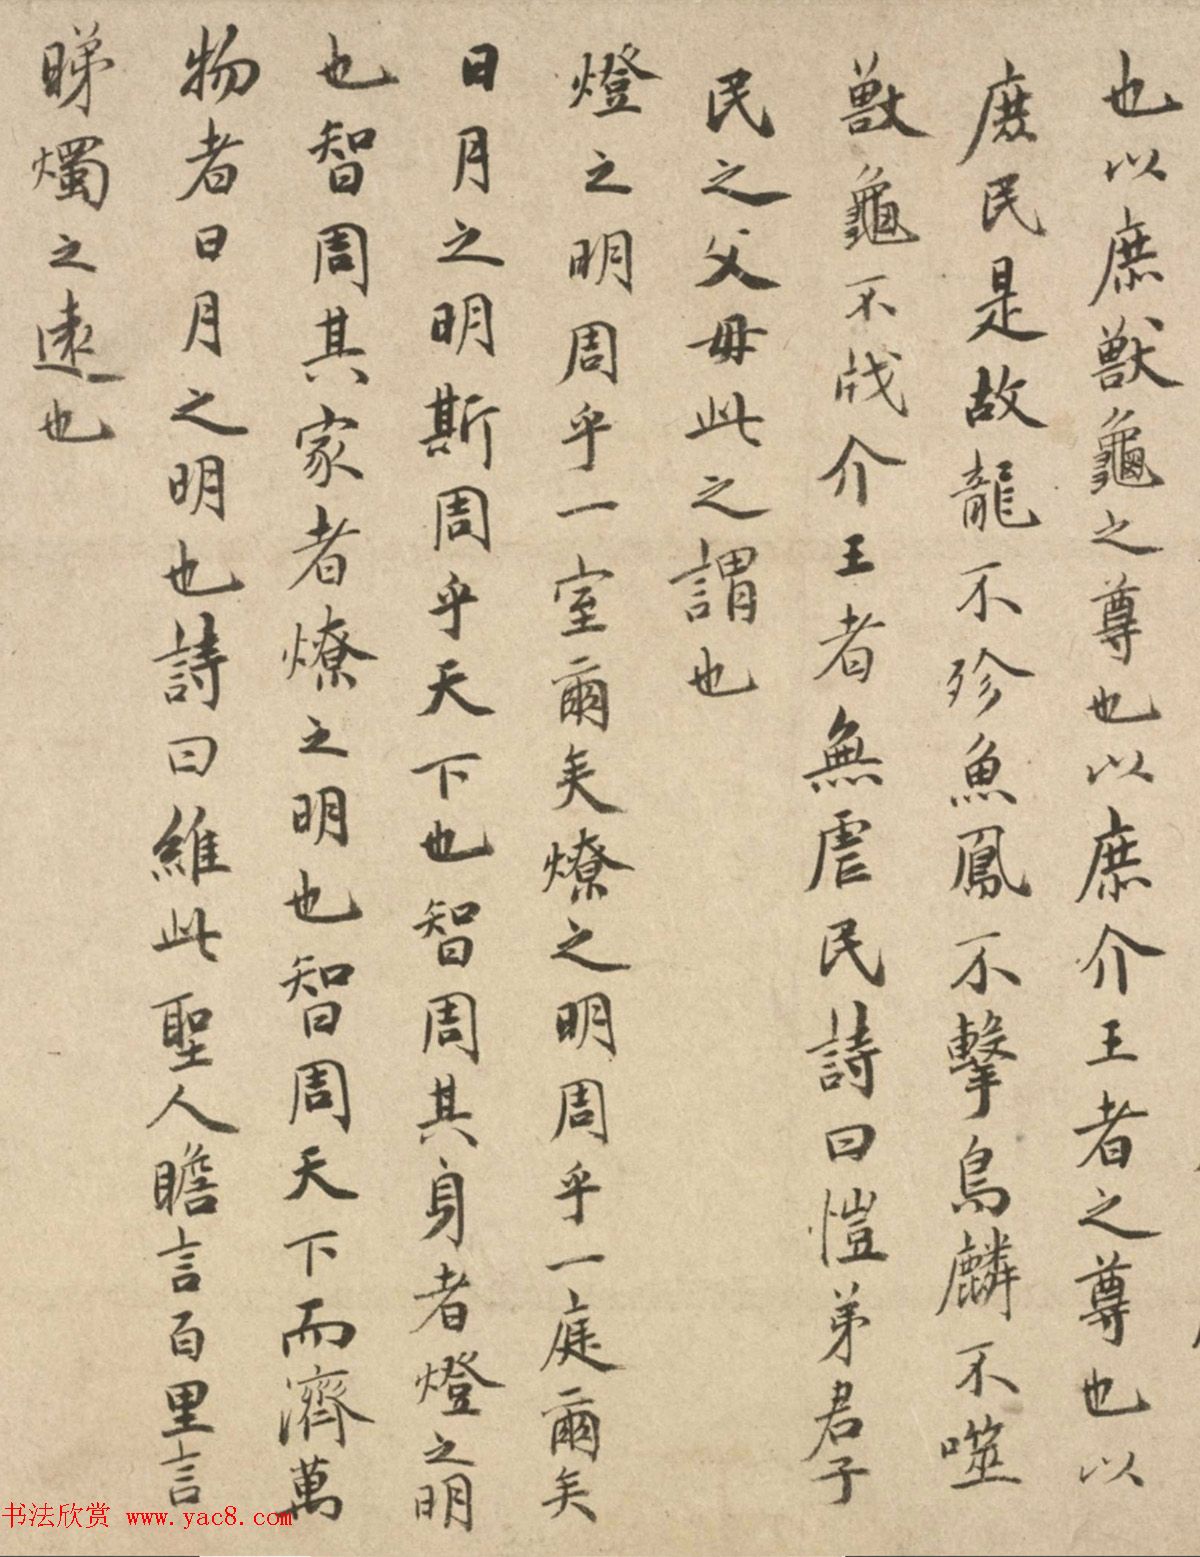 也以庶獸龜之尊也以庶介王者之尊也以
庶民是故龍不殄魚鳳不擊鳥麟不噬
獸龜不戕介王者無虐民詩曰愷弟君子
民之父毋此之謂也
燈之明周乎一室爾矣燎之明周乎一庭爾矣
日月之明斯周乎天下也智周其身者燈之明
也智周其家者燎之明也智周天下而濟萬
物者日月之明也詩曰維此聖人瞻言百里言
睇燭之遠也
书法欣赏 www.yac8.com